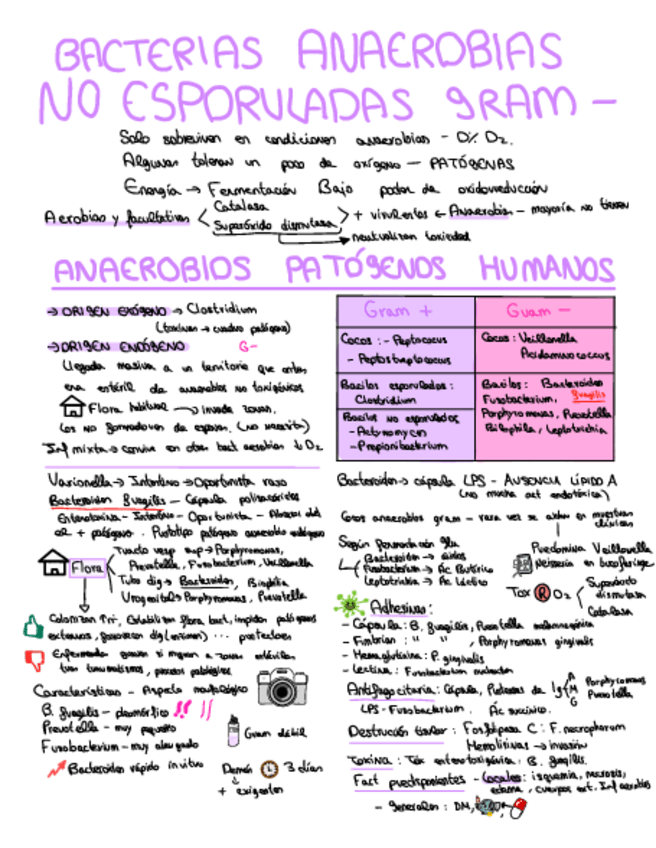 BACTERIAS ANAEROBIAS
NO ESPORULADAS GRAM -
Solo sobreviven en condiciones anaerobias - 0% O2.
Algunas toleran un poco de oxígeno - PATÓGENAS
Energía → Fermentación Bajo poder de oxidoreducción
Aerobias y facultativas < Catalasa
Superóxido dismutasa > + virulentas ← Anaerobias - mayoría no tienen
→ neutralizan toxicidad
ANAEROBIOS PATÓGENOS HUMANOS
→ ORIGEN EXÓGENO → Clostridium
(toxinas → cuadro patógeno)
→ ORIGEN ENDÓGENO G-
Llegada masiva a un territorio que antes
era estéril de anaerobios no toxigénicos
Flora habitual → invade zonas,
Los no formadores de esporas. (no necesita)
Inf mixta → convive con otras bact aerobias ↓ O2
Gram +
Gram -
Cocos : - Peptococcus
- Peptostreptococcus
Cocos: Veillonella
Acidaminococcus
Bacilos esporulados :
Clostridium
Bacilos no esporulados
- Actynomyces
- Propionibacterium
Bacilos: Bacteroides fragilis
Fusobacterium,
Porphyromonas, Prevotella
Bilophila, Leptotrichia
→ Intestino → Oportunista raro
Bacteroides fragilis - Cápsula polisacárida
Enterotoxina - Intestino - Oportunista -
el + patógeno . Prototipo patógeno anaerobio endógeno
Flora
Tracto resp sup → Porphyromonas,
Prevotella, Fusobacterium, Veillonella
Tubo dig → Bacteroides, Bilophila
Urogenital → Porphyromonas, Prevotella
Colonizan Pri, Estabilizan flora bact, impiden patógenos
externos, favorecen dig (enzimas) ... protectores
Enfermedad cuando si migran a zonas estériles
tras traumatismos, procesos patológicos
Características - Aspecto morfológico
B. fragilis - pleomórfico
Prevotella - muy pequeño
Fusobacterium - muy alargado
Gram débil
Bacteroides rápido in vitro
Demás 3 días
+ exigentes
Bacteroides → cápsula LPS - AUSENCIA LÍPIDO A
(no mucha act endotóxica)
Cocos anaerobios gram - rara vez se aislan en muestras
clínicas
Según fermentación Glu
Bacteroides →
Fusobacterium → Ac Butírico
Leptotrichia → Ac Láctico
Predomina Veillonella
Neisseria en bucofaringe
Tox R O2 < Superóxido
dismutasa
Catalasa
Adhesivos :
- Cápsula : B. fragilis, Prevotella melaninogenica
- Fimbrias : " " , Porphyromonas gingivalis
- Hemaglutinina : P. gingivalis
- Lectina : Fusobacterium nucleatum
Antifagocitaria : Cápsula, Proteasas de Ig A G M Porphyromonas
Prevotella
LPS - Fusobacterium. Ac succínico.
Destrucción tisular : Fosfolipasa C : F. necrophorum
Hemolisinas → invasión
Toxina : Tox enterotoxigénica : B. fragilis.
Fact predisponentes - Locales : isquemia, necrosis,
edema, cuerpos ext. Inf aerobios
- Generales : DM,